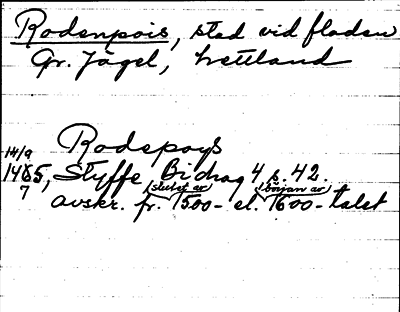 Rodenpois, stad vid floden
Gr. Jägel, Lettland
Rodepoys
14/9
1485, Styffe, Bidrag 4 s. 42.
7 (slutet av (början av)
avskr. fr. 1500- el. 1600-talet